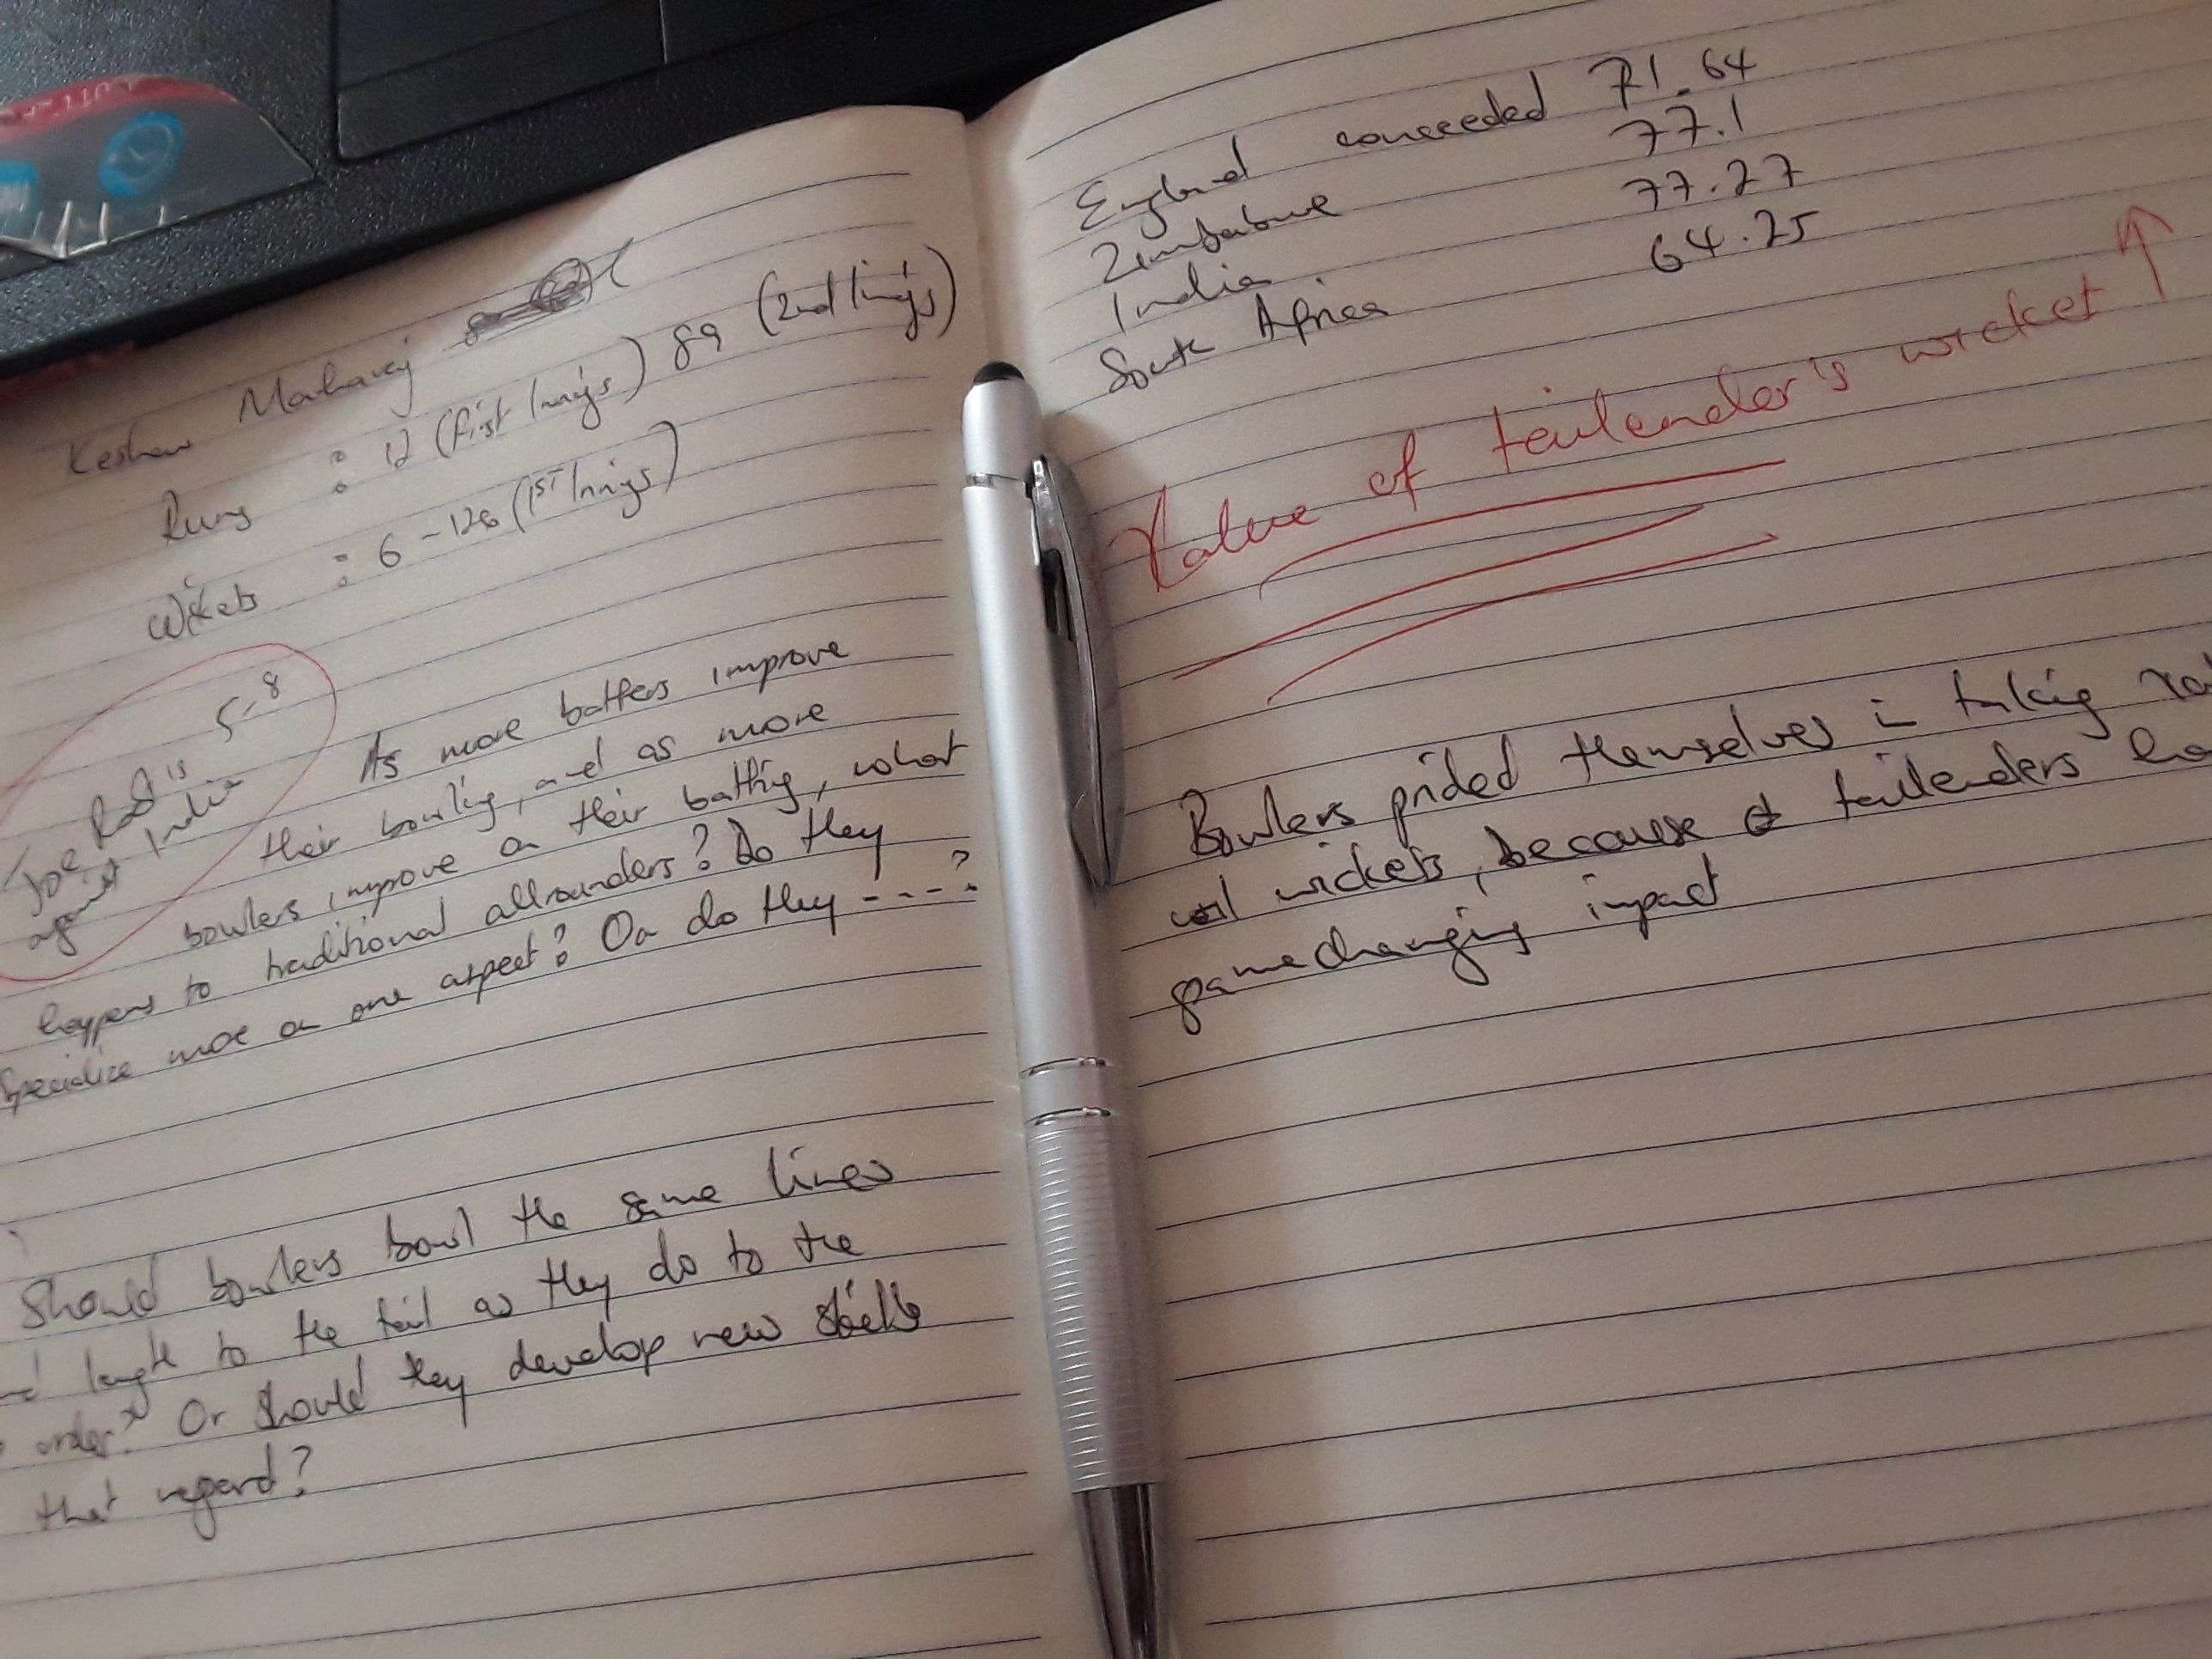 Keshav Maharaj
Runs : 12 (first Innigs) 89 (2nd Innigs)
Wickets : 6-128 (1st Innigs)
Joe Root's 5-8
against India
As more batters improve
their bowling, and as more
bowlers improve on their batting, what
happens to traditional allrounders? Do they
Specialize more on one aspect? Or do they ----?
Should bowlers bowl the same lines
length to the tail as they do to the
order? Or should they develop new skills
that regard?
England conceeded 71.64
Zimbabwe 77.1
India 77.27
South Africa 64.25
Value of tailender's wicket ↑
Bowlers prided themselves in taking
wickets, because tailenders
gamechanging impact